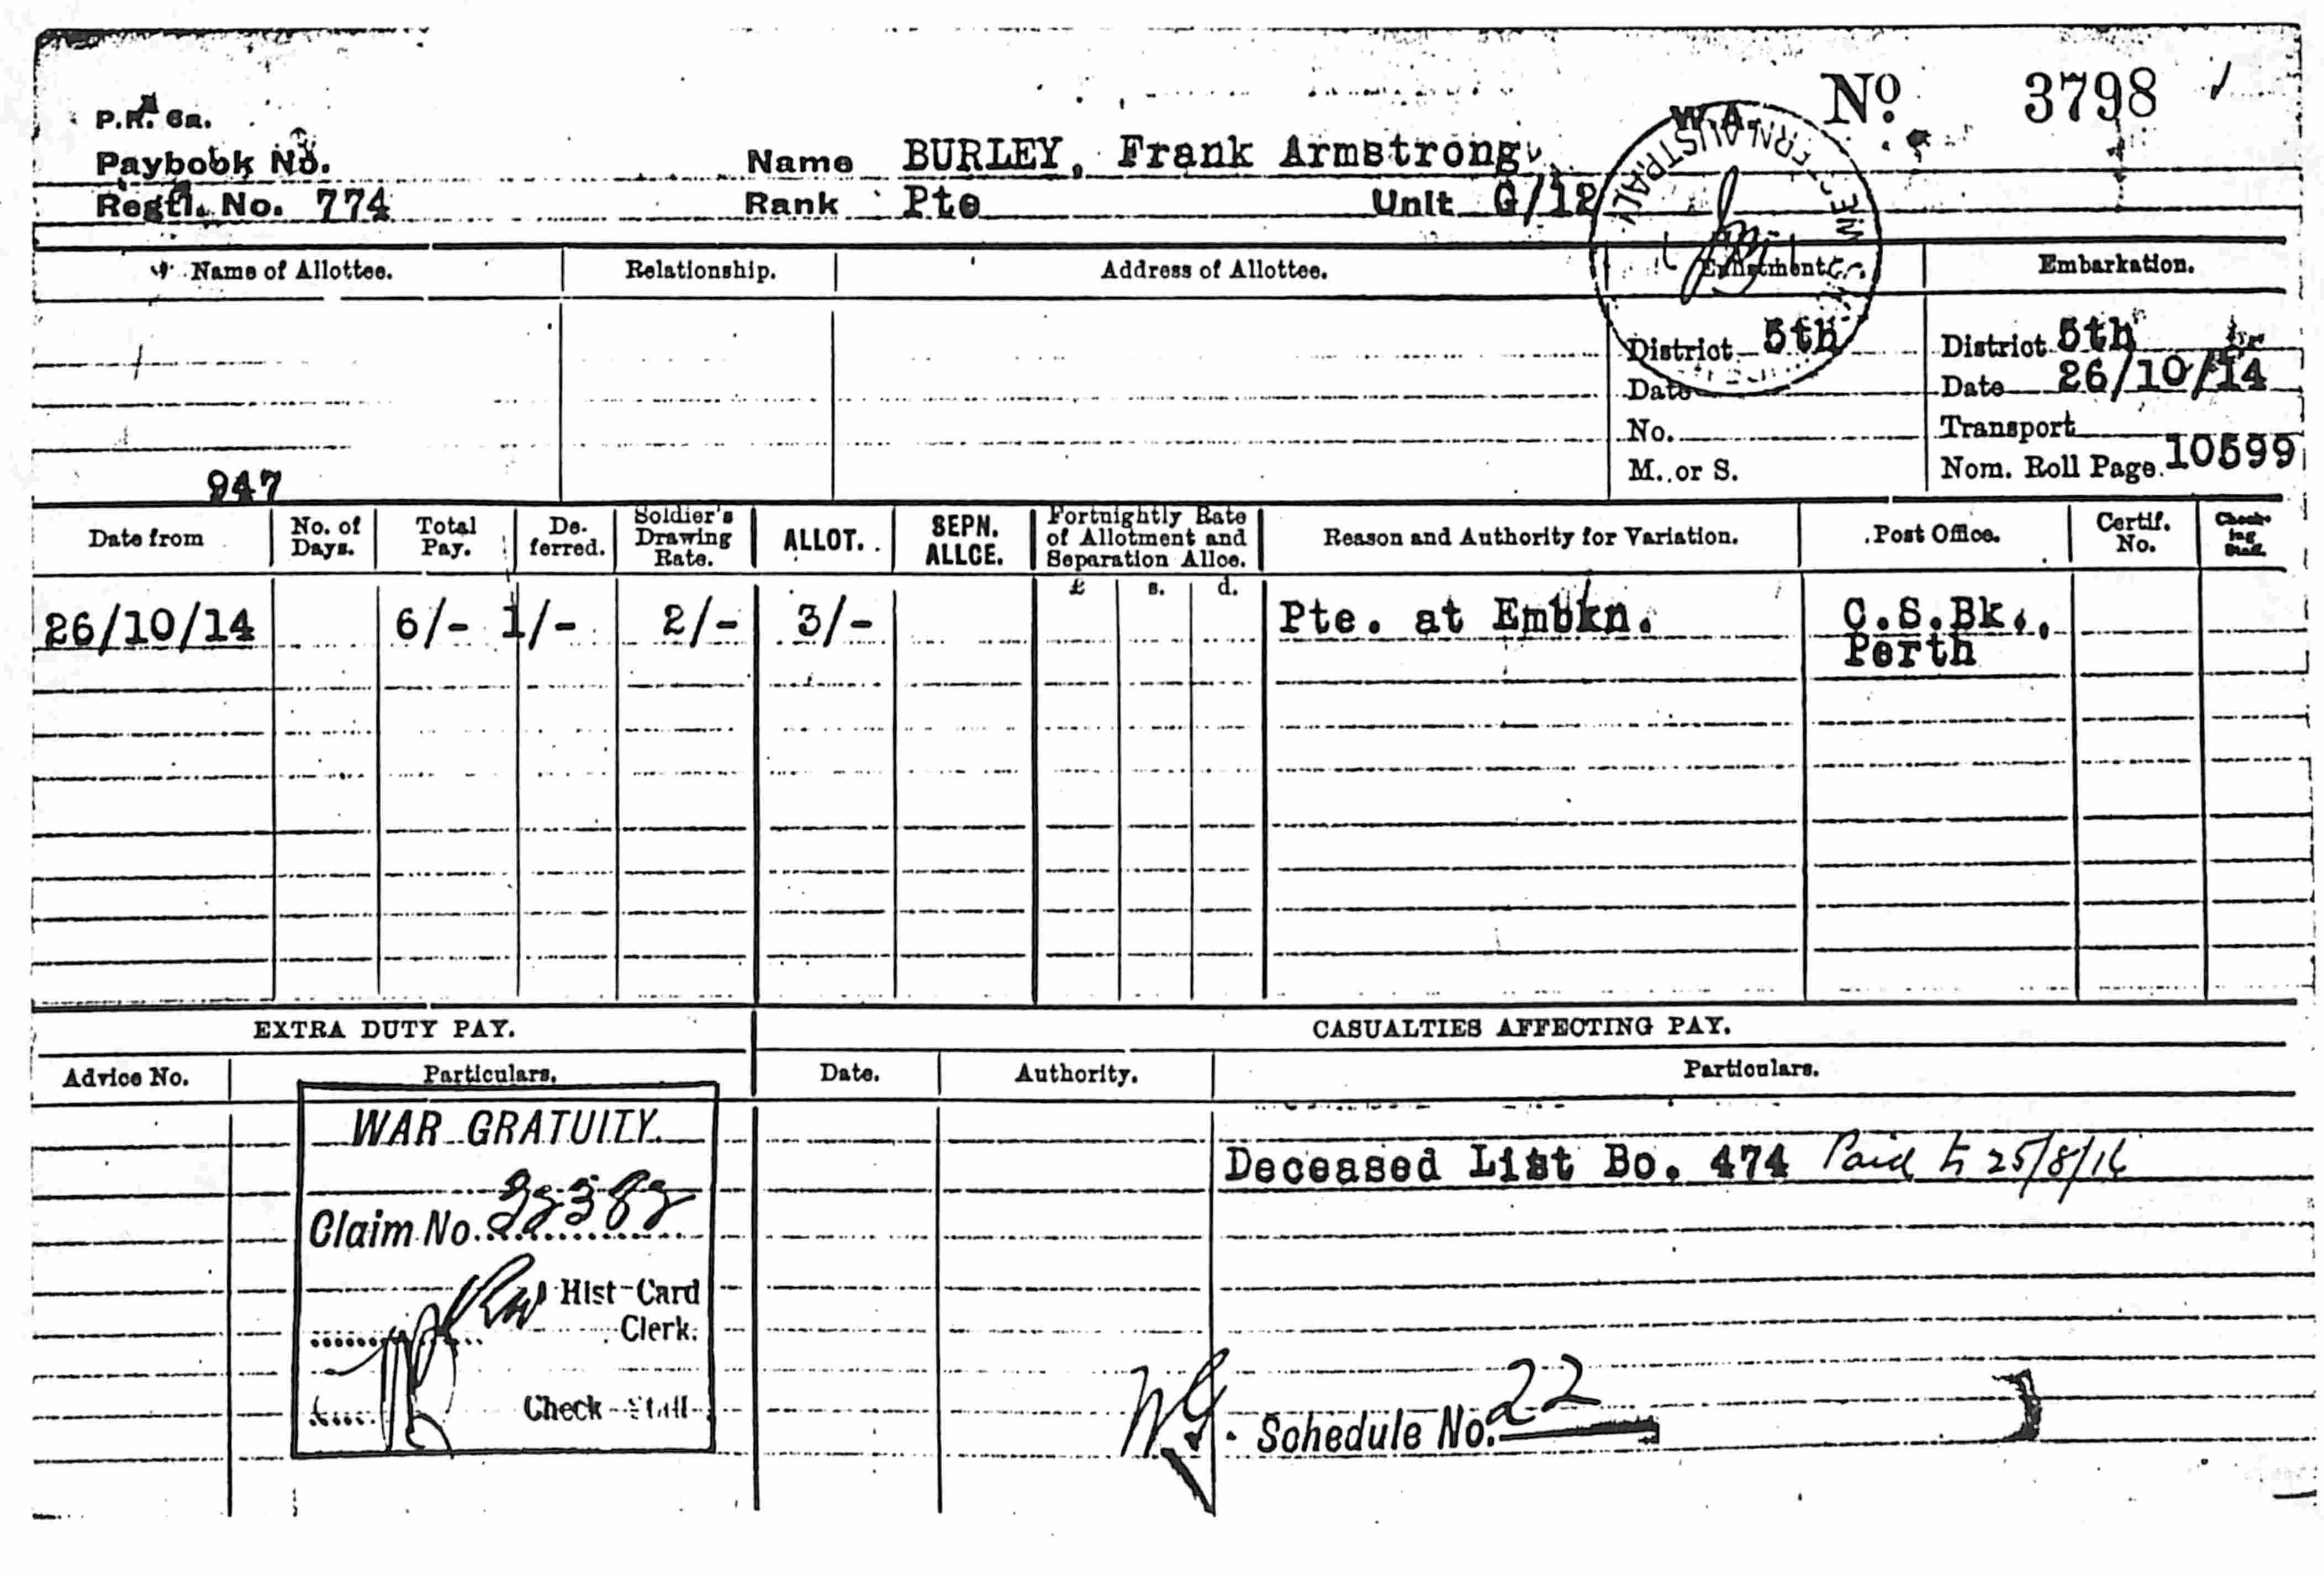 No 3798
W.A.
P.R. 6a.
Paybook No.
Name BURLEY, Frank Armstrong
Regtl. No. 774 Rank Pte Unit G/12
WESTERN AUSTRALIA
Name of Allottee. Relationship. Address of Allottee. Enlistment. Embarkation.
District 5th District 5th
Date Date 26/10/14
No. Transport
M. or S. Nom. Roll Page. 10599
947
Date from No. of Days. Total Pay. De-ferred. Soldier's Drawing Rate. ALLOT. SEPN. ALLCE. Fortnightly Rate of Allotment and Separation Allce. Reason and Authority for Variation. Post Office. Certif. No. Check-ing Staff.
£ s. d.
26/10/14 6/- 1/- 2/- 3/- Pte. at Embkn. C.S.Bk.,
Perth
EXTRA DUTY PAY. CASUALTIES AFFECTING PAY.
Advice No. Particulars. Date. Authority. Particulars.
WAR GRATUITY
Deceased List Bo. 474 Paid to 25/8/16
Claim No. 22382
Hist-Card
Clerk.
Check Staff
Schedule No. 22